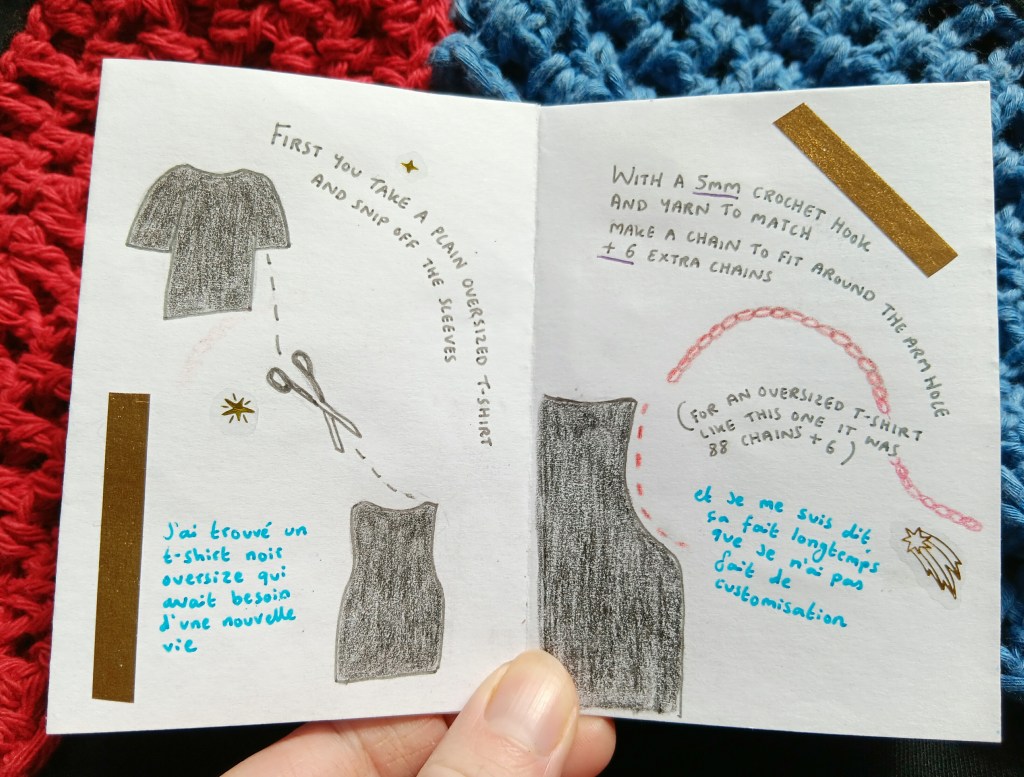 FIRST YOU TAKE A PLAIN OVERSIZED T-SHIRT
AND SNIP OFF THE SLEEVES
J'ai trouvé un
t-shirt noir
oversize qui
avait besoin
d'une nouvelle
vie
WITH A 5mm CROCHET HOOK
AND YARN TO MATCH
MAKE A CHAIN TO FIT AROUND THE ARM HOLE
+ 6 EXTRA CHAINS
(FOR AN OVERSIZED T-SHIRT
LIKE THIS ONE IT WAS
88 CHAINS + 6)
et je me suis dit,
sa fait longtemps
que je n'ai pas
fait de
customisation